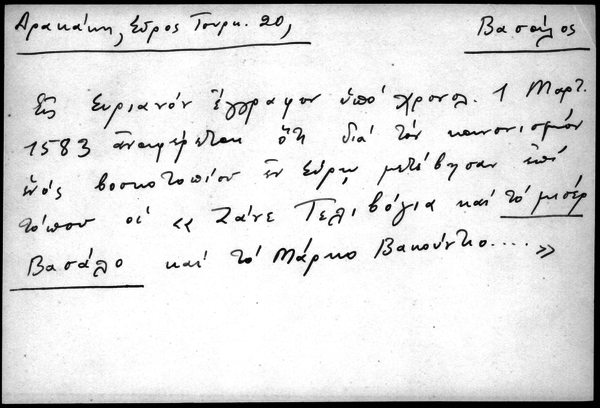 Δρακάκη, Σῦρος Τουρκ. 20,
Βασάλος
Εἰς Συριανόν ἔγγραφον ὑπό χρονολ. 1 Μαρτ.
1583 ἀναφέρεται ὅτι διά τόν κανονισμόν
ἑνός βοσκοτοπίου ἐν Σύρῳ μετέβησαν ἐπί
τόπου οἱ « Ζάνε Γελιβόγια καί τό μισέρ
Βασάλο καί τό Μάρκο Βακόντιο.... »